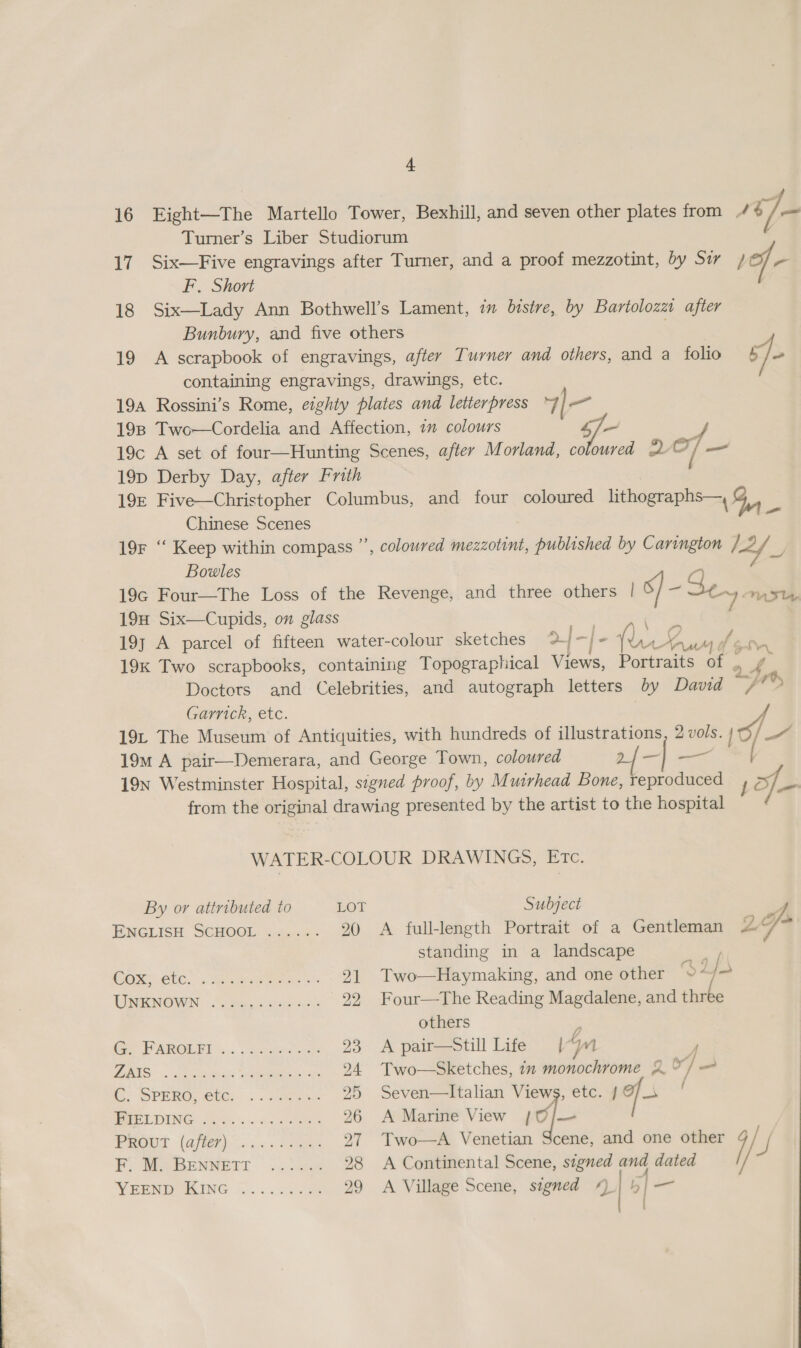 4
16 Eight—The Martello Tower, Bexhill, and seven other plates from
Turner's Liber Studiorum
17 Six—Five engravings after Turner, and a proof mezzotint, by Sir 10/-
F. Short
18 Six—Lady Ann Bothwell's Lament, in bistre, by Bartolozzi after
Bunbury, and five others
19 A scrapbook of engravings, after Turner and others, and a folio 6/-
containing engravings, drawings, etc.
19A Rossini's Rome, eighty plates and letterpress 7/-
19B Two—Cordelia and Affection, in colours
19C A set of four—Hunting Scenes, after Morland, coloured 20/-
19D Derby Day, after Frith
19E Five—Christopher Columbus, and four coloured lithographs—
Chinese Scenes
19F “ Keep within compass ”, coloured mezzotint, published by Carington 12/-
Bowles
19G Four—The Loss of the Revenge, and three others
19H Six—Cupids, on glass
19J A parcel of fifteen water-colour sketches 2/-/-
19K Two scrapbooks, containing Topographical Views, Portraits of
Doctors and Celebrities, and autograph letters by David
Garrick, etc.
19L The Museum of Antiquities, with hundreds of illustrations, 2 vols. 10/-
19M A pair—Demerara, and George Town, coloured 2/-/-
19N Westminster Hospital, signed proof, by Muirhead Bone, reproduced
from the original drawing presented by the artist to the hospital
WATER-COLOUR DRAWINGS, ETC.
By or attributed to LOT Subject
ENGLISH SCHOOL ...... 20 A full-length Portrait of a Gentleman
standing in a landscape
COX, etc. ............... 21 Two—Haymaking, and one other
UNKNOWN ............ 22 Four—The Reading Magdalene, and three
others
G. FAROLFI ............ 23 A pair—Still Life
ZAIS .................. 24 Two—Sketches, in monochrome 20/-
C. SPERO, etc. ......... 25 Seven—Italian Views, etc. 10/-
FIELDING ............. 26 A Marine View 10/-
PROUT (after) .......... 27 Two—A Venetian Scene, and one other
F. M. BENNETT ...... 28 A Continental Scene, signed and dated
YEEND KING .......... 29 A Village Scene, signed